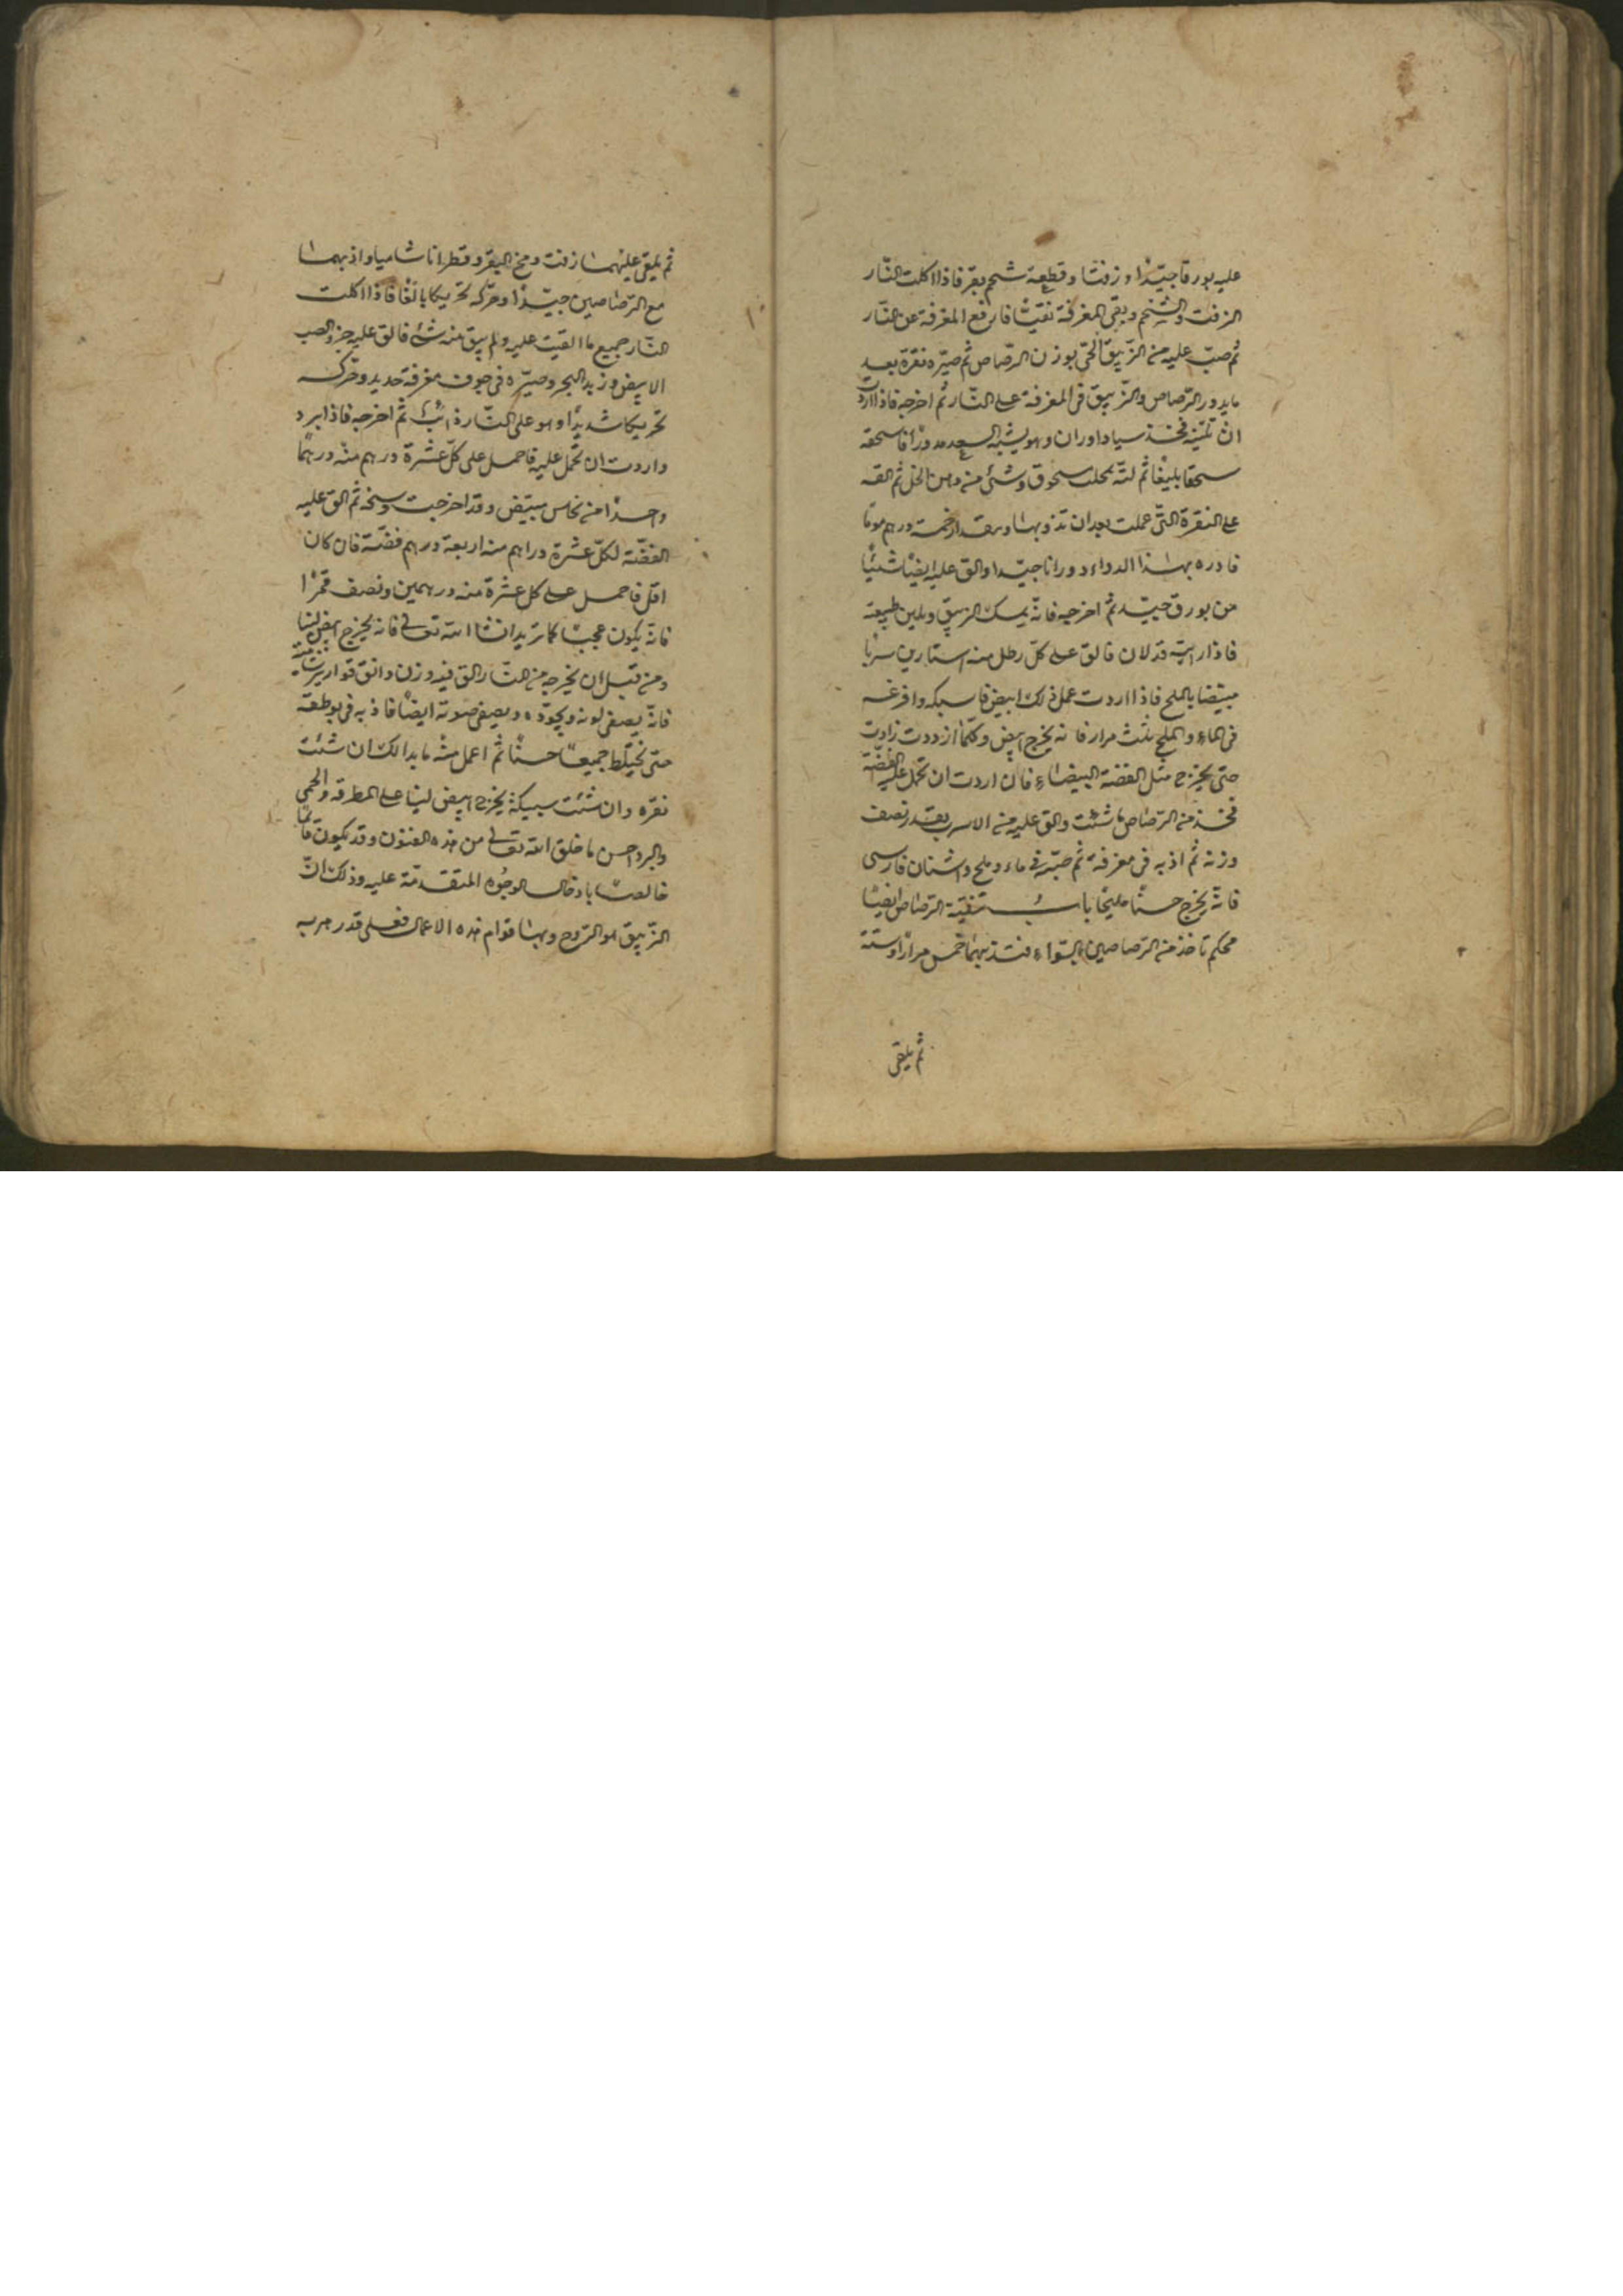 عليه بورقا جيّدا وزفتا وقطعة شحم بقر فاذا اكلت النّار
الزفت والشحم وبقى المغرفة نقيّا فارفع المغرفة عن النّار
ثم صبّ عليه من الزّيبق الحىّ بوزن الرّصاص ثم صيّره نقرة بعد
ما يدور الرّصاص والزّيبق فى المغرفة على النّار ثم اخرجه فاذا اردت
ان تليّنه فخذ سياداوران وهو يشبه فاسحقه
سحقا بليغا ثم لتّه بمحلب مسحوق وشئ من دهن الخل ثم القه
على النقرة التّى عملت بعد ان تذوبها ومقدار خمسة درهم موما
فادره بهذا الدواء دورانا جيّدا والق عليه ايضا شيئا
من بورق جيّد ثم اخرجه فانّه يمسك الزيبق ويلين طبيعته
فاذا رايته قد لان فالق على كلّ رطل منه استارين سربا
مبيّضا بالملح فاذا اردت عمل ذلك ابيض فاسبكه وافرغه
فى الماء والملح ثلث مرار فانه يخرج ابيض وكلّما ازددت زادت
حتى يخرج مثل الفضة البيضاء فان اردت ان تحمل عليه الفضّة
فخذ من الرّصاص ما شئت والق عليه من الاسرب بقدر نصف
وزنه ثم اذبه فى مغرفة ثم صبّه فى ماء وملح واشنان فارسى
فانّه يخرج حسنا مليحا باب تنقية الرّصاص ايضا
محكم تاخذ من الرّصاصين بالسّواء فتذيبهما خمس مرارا وستة
ثم يلقى
ثم يلقى عليهما زفت ومخ البقر وقطرانا شاميا واذبهما
مع الرّصاصين جيّدا وحرّكه تحريكا بالغا فاذا اكلت
النّار جميع ما القيت عليه ولم يبق منه شئ فالق عليه
الابيض وزبد البحر وصيّره فى جوف مغرفة حديد وحرّكه
تحريكا شديدا وهو على النّار ذائب ثم اخرجه فاذا برد
واردت ان تحمل عليه فاحمل على كلّ عشرة درهم منه درهما
واحدا من نحاس مبيّض وقد اخرجت وسخه ثم الق عليه
الفضّة لكلّ عشرة دراهم منه اربعة درهم فضّة فان كان
اقل فاحمل على كل عشرة منه درهمين ونصف قمرا
فانّه يكون عجبا كما تريد انشا الله تعالى فانه يخرج ابيض لينا
ومن قبل ان يخرجه من النّار الق فيه وزن دانق قوارير شامية
فانّه يصفى لونه ويجوّده ويصفى صوته ايضا فاذبه فى بوطقة
حتى يختلط جميعا حسنا ثم اعمل منه ما بدا لك ان شئت
نقره وان شئت سبيكة يخرج ابيض لينا على المطرقه والحمى
والبرد احسن ما خلق الله تعالى من هذه الفنون وقد يكون قائما
خالصا بادخال الوجوه المتقدّمة عليه وذلك انّ
الزّيبق هو الرّوح وبها قوام هذه الاعمال فعلى قدر هربه